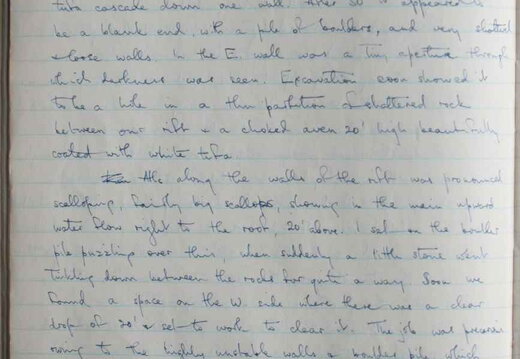 tufa cascade down one wall. After 50' it appeared to
be a blank end, with a pile of boulders, and very shattered
& loose walls. In the E. wall was a tiny aperture through
which darkness was seen. Excavation soon showed it
to be a hole in a thin partition of shattered rock
between our rift & a choked aven 20' high beautifully
coated with white tufa.
All along the walls of the rift was pronounced
scalloping, fairly big scallops, showing in the main upward
water flow right to the roof, 20' above. I sat on the boulder
pile puzzling over this, when suddenly a little stone went
tinkling down between the rocks for quite a way. Soon we
found a space on the W. side where there was a clear
drop of 20' & set to work to clear it. The job was precarious
owing to the highly unstable walls & boulder pile which